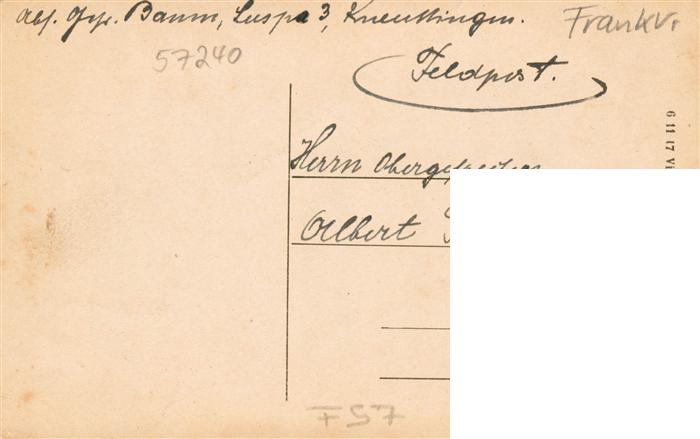 Abs. Gefr. Baum, Luspa 3, Kneuttingen.
Frankr.
57240
Feldpost.
6 11 17
Herrn Obergefreiten
Albert
F 57